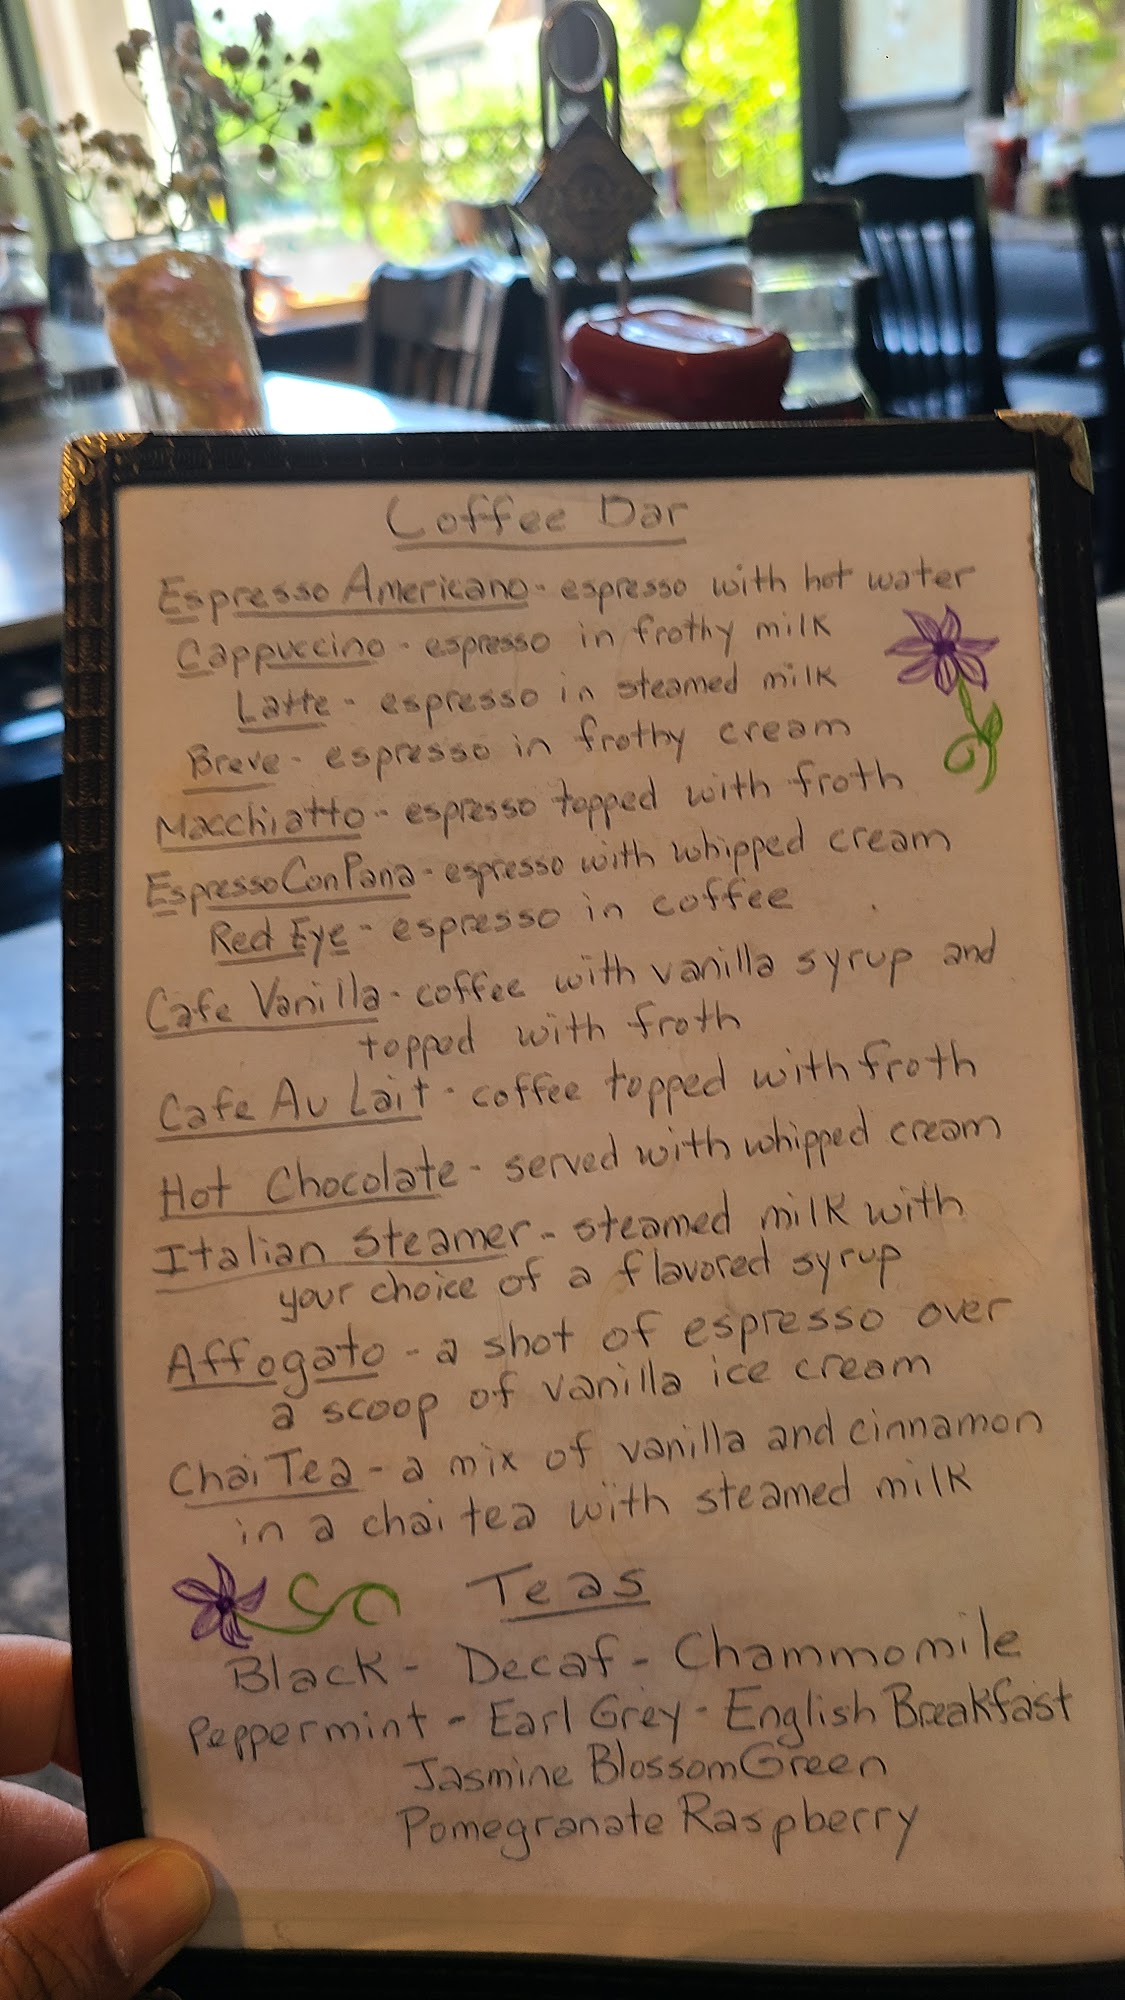 Coffee Bar
Espresso Americano - espresso with hot water
Cappuccino - espresso in frothy milk
Latte - espresso in steamed milk
Breve - espresso in frothy cream
Macchiatto - espresso topped with froth
Espresso Con Pana - espresso with whipped cream
Red Eye - espresso in coffee
Cafe Vanilla - coffee with vanilla syrup and
topped with froth
Cafe Au Lait - coffee topped with froth
Hot Chocolate - served with whipped cream
Italian Steamer - steamed milk with
your choice of a flavored syrup
Affogato - a shot of espresso over
a scoop of vanilla ice cream
Chai Tea - a mix of vanilla and cinnamon
in a chai tea with steamed milk
Teas
Black - Decaf - Chammomile
Peppermint - Earl Grey - English Breakfast
Jasmine Blossom Green
Pomegranate Raspberry